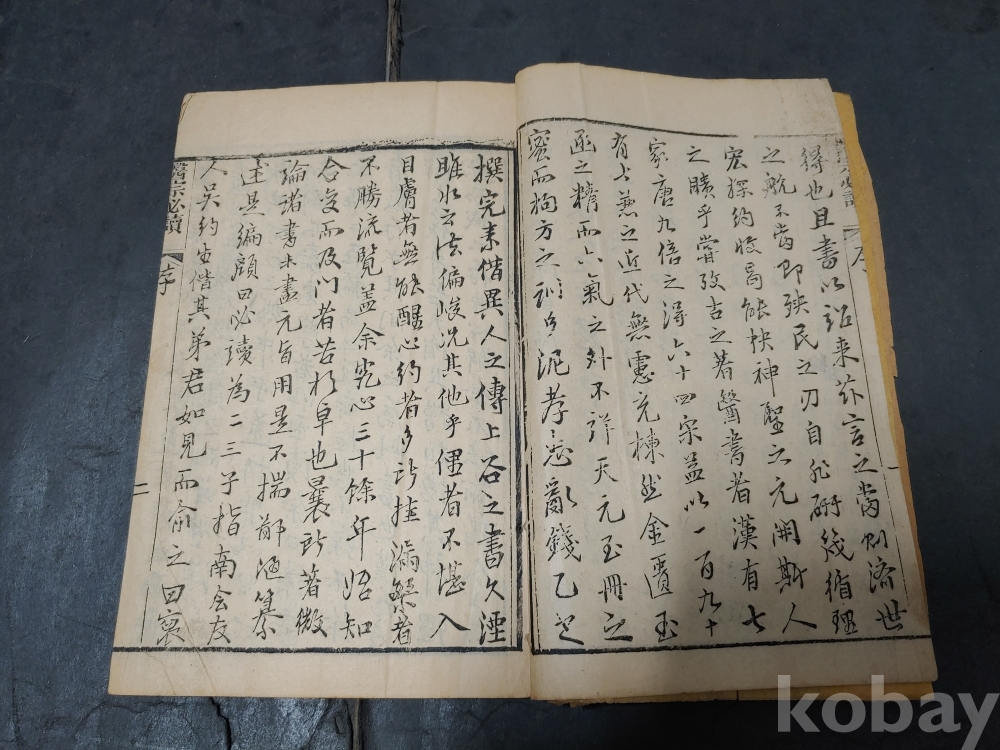 得也且書以詔來茲言之當則濟世
之航不當即殃民之刃自非研幾循理
宏探約收曷能抉神聖之玄開斯人
之瞶乎嘗攷古之著醫書者漢有七
家唐九倍之得六十四宋益以一百九十
有七兼之近代無慮充棟然金匱玉
函之精而六氣之外不詳天元玉冊之
密而拘方之訓多泥孝忠亂錢乙之
撰完素偕異人之傳上谷之書久湮
睢水云法偏峻況其他乎俚者不堪入
目膚者無能醒心約者多所掛漏繁者
不勝流覽蓋余究心三十餘年始知
合變而及門者苦於卑也曩所著微
論諸書未盡元旨用是不揣鄙陋纂
述是編顏曰必讀為二三子指南會友
人吳約生偕其弟君如見而俞之曰裒
醫宗必讀
序
一
醫宗必讀
序
二
kobay